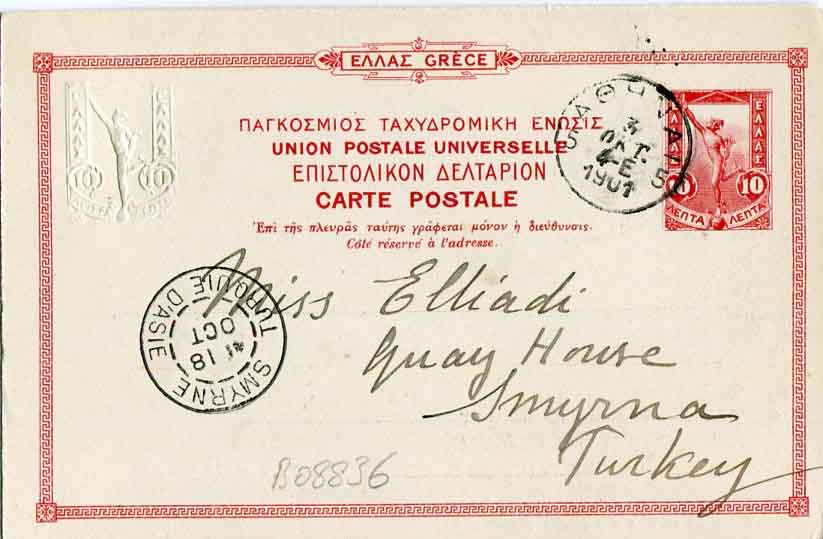 ΕΛΛΑΣ GRÈCE
ΠΑΓΚΟΣΜΙΟΣ ΤΑΧΥΔΡΟΜΙΚΗ ΕΝΩΣΙΣ
UNION POSTALE UNIVERSELLE
ΕΠΙΣΤΟΛΙΚΟΝ ΔΕΛΤΑΡΙΟΝ
CARTE POSTALE
Ἐπὶ τῆς πλευρᾶς ταύτης γράφεται μόνον ἡ διεύθυνσις.
Côté réservé à l'adresse.
ΕΛΛΑΣ ΕΛΛΑΣ
10 10
ΛΕΠΤΑ ΛΕΠΤΑ
ΕΛΛΑΣ ΕΛΛΑΣ
10 10
ΛΕΠΤΑ ΛΕΠΤΑ
ΑΘΗΝΑΙ 5
ΟΚΤ.
1901
Miss Elliadi
Quay House
Smyrna
Turkey
SMYRNE
TURQUIE D'ASIE
18
OCT
B08836